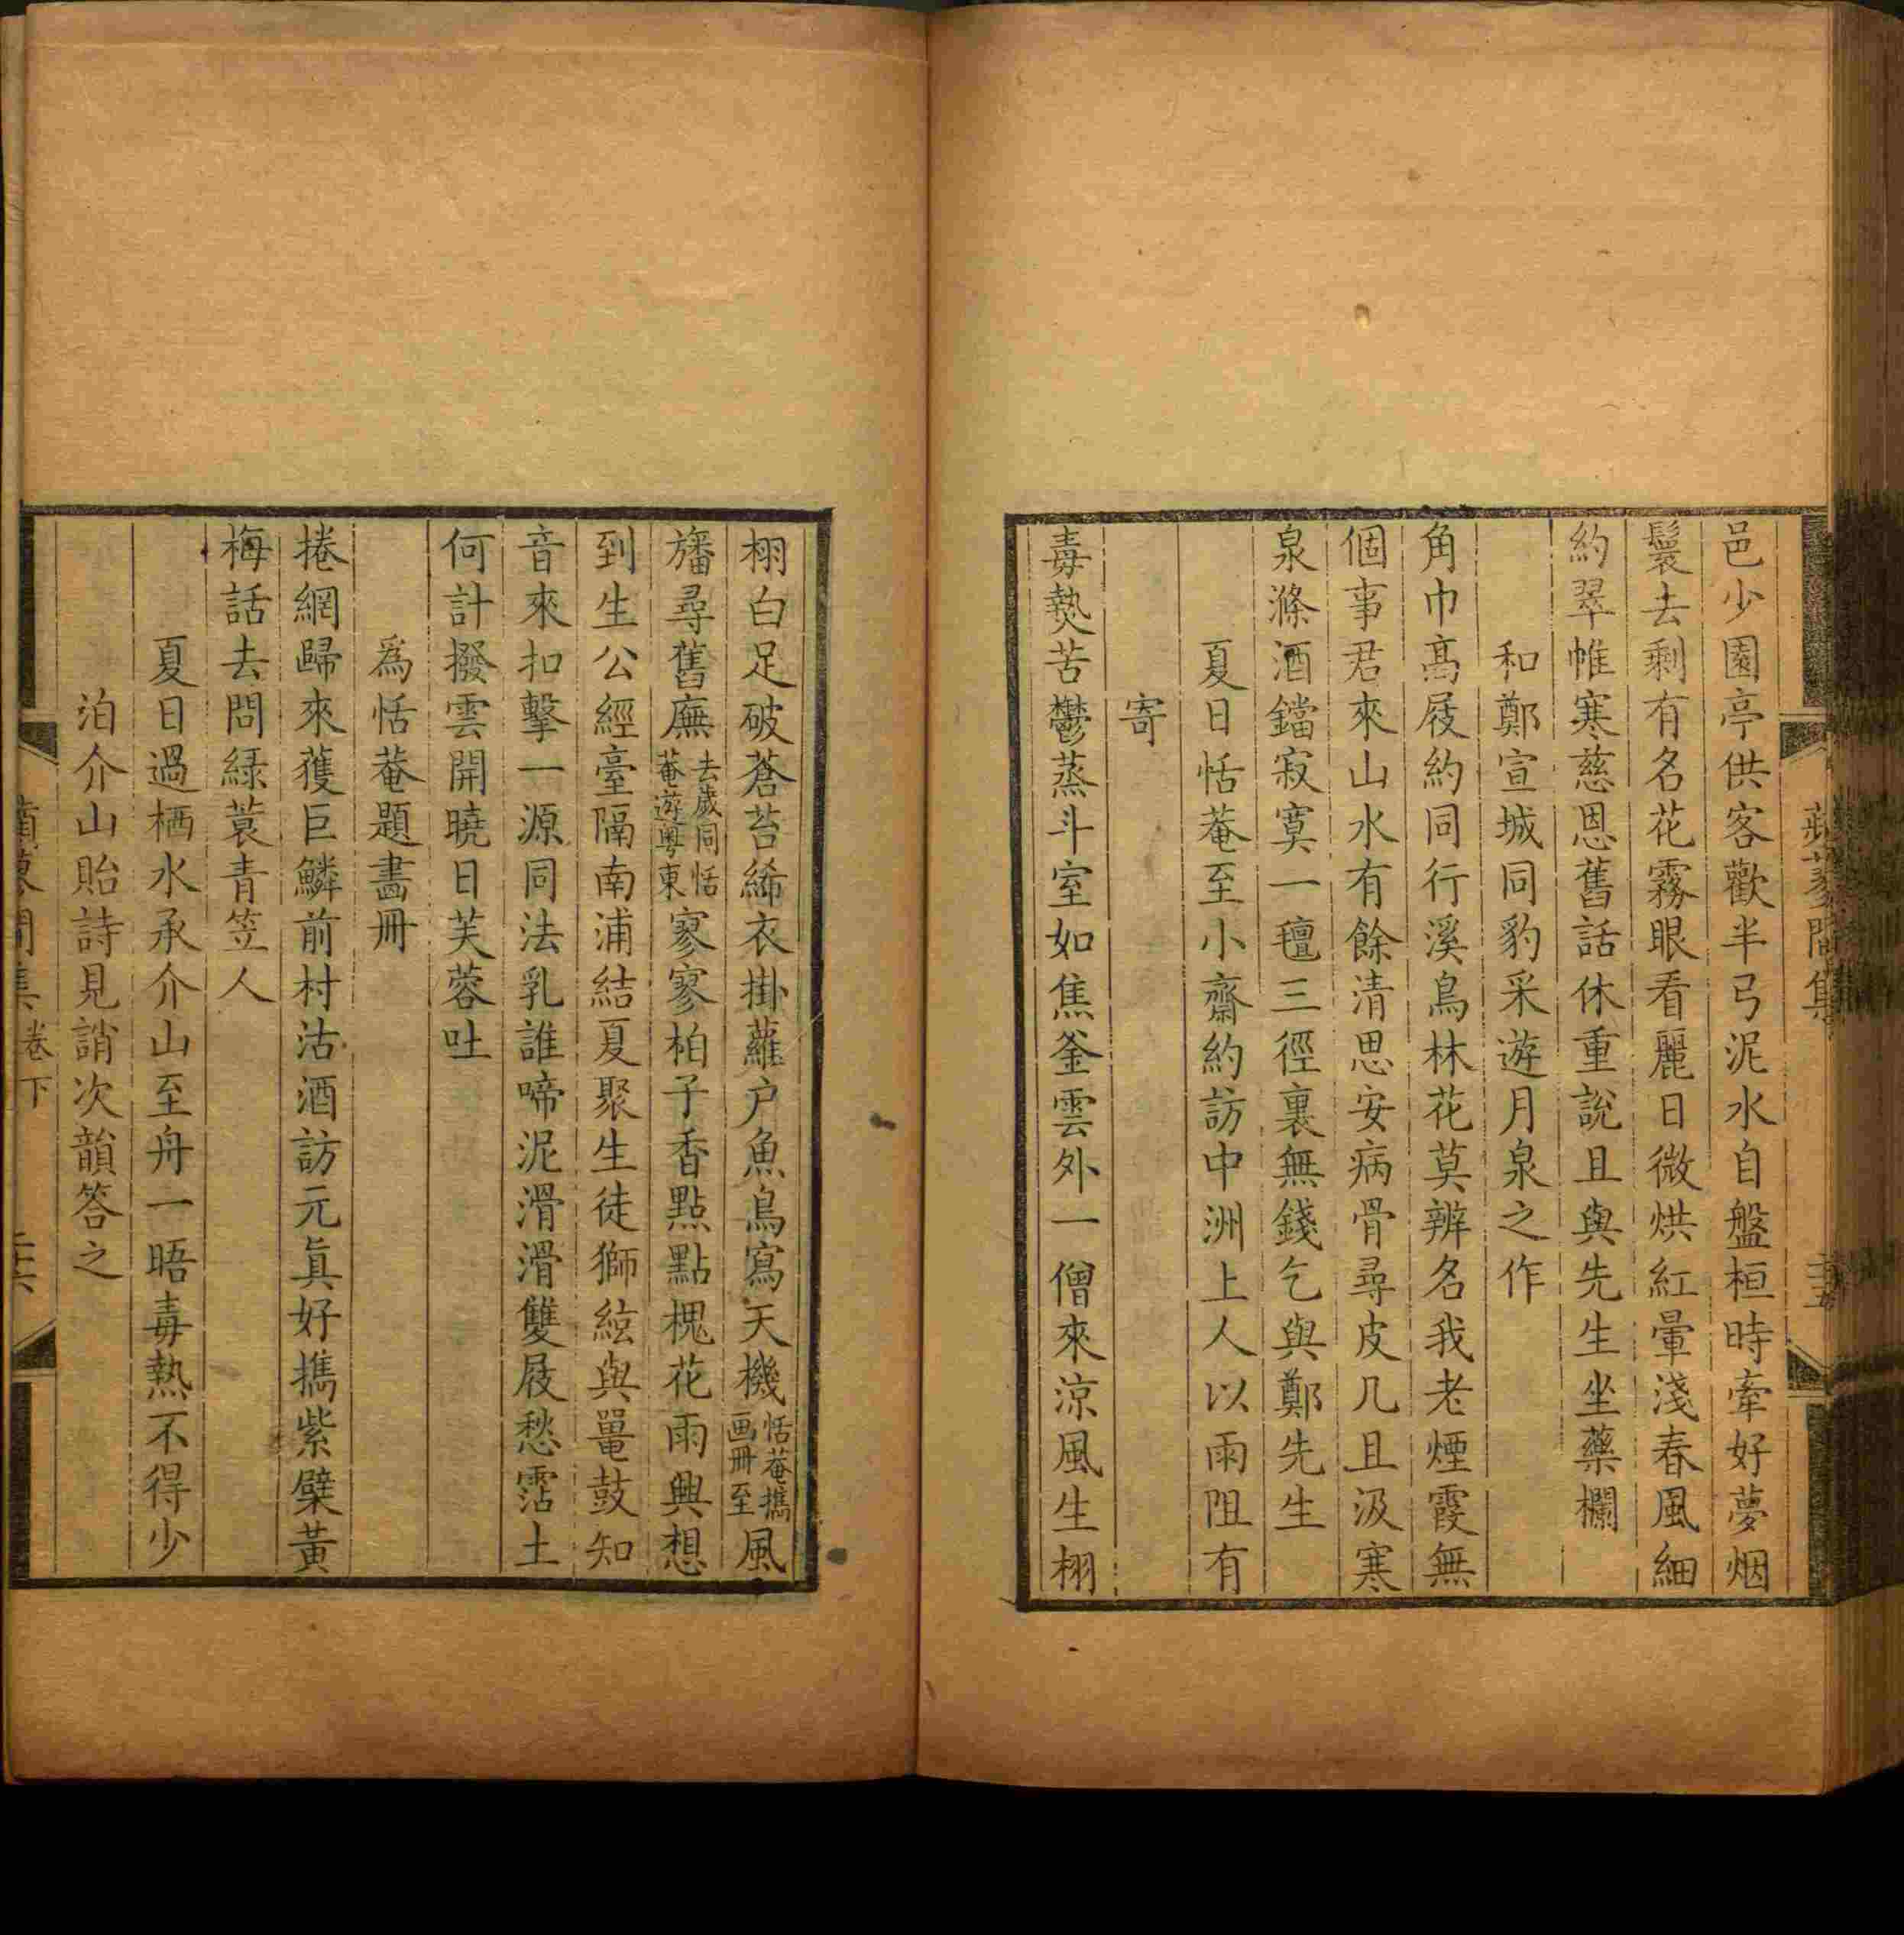 邑少園亭供客歡半弓泥水自盤桓時牽好夢烟
鬟去剩有名花霧眼看麗日微烘紅暈淺春風細
約翠帷寒慈恩舊話休重說且與先生坐藥欄
和鄭宣城同豹采遊月泉之作
角巾高屐約同行溪鳥林花莫辨名我老煙霞無
個事君來山水有餘清思安病骨尋皮几且汲寒
泉滌酒鐺寂寞一氊三徑裏無錢乞與鄭先生
夏日恬菴至小齋約訪中洲上人以雨阻有
寄
毒熱苦鬱蒸斗室如焦釜雲外一僧來涼風生栩
栩白足破蒼苔絺衣掛蘿戶魚鳥寫天機恬菴攜画冊至風
旛尋舊廡去歲同恬菴遊粵東寥寥柏子香點點槐花雨興想
到生公經臺隔南浦結夏聚生徒獅絃與鼉鼓知
音來扣擊一源同法乳誰啼泥滑滑雙屐愁霑土
何計撥雲開曉日芙蓉吐
爲恬菴題畵冊
捲網歸來獲巨鱗前村沽酒訪元真好攜紫檗黃
梅話去問緑蓑青笠人
夏日過栖水承介山至舟一晤毒熱不得少
泊介山貽詩見誚次韻答之
卷下